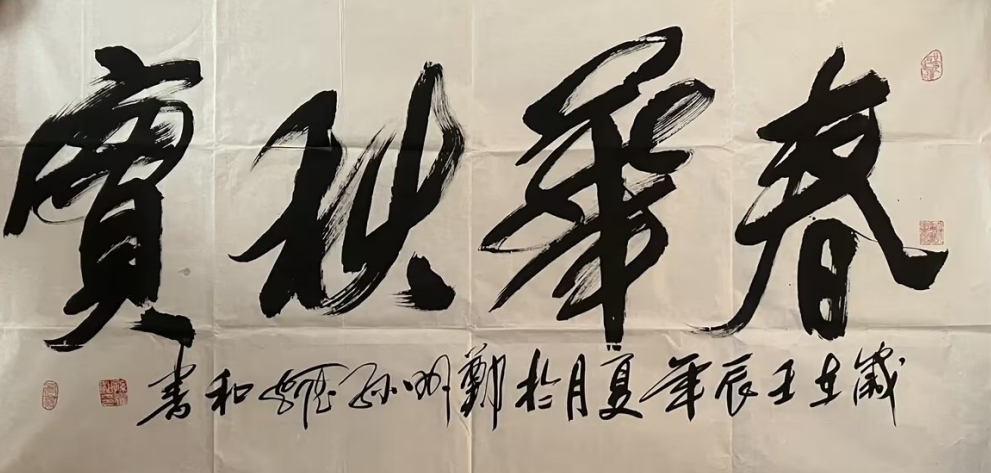 春华秋實
歲在壬辰年夏月於鄭州孫耀和書